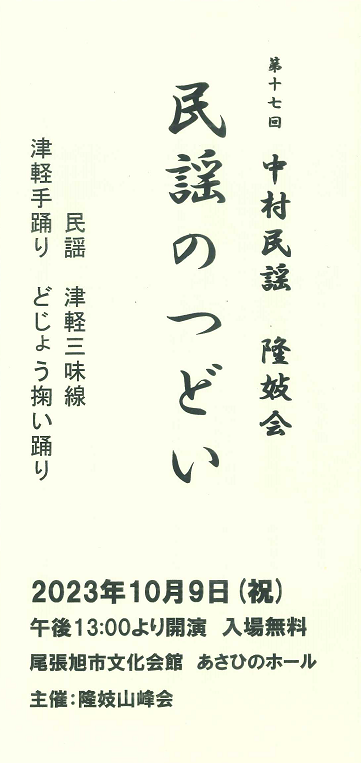 第十七回 中村民謡 隆妓会
民謡のつどい
民謡 津軽三味線
津軽手踊り どじょう掬い踊り
2023年10月9日(祝)
午後13:00より開演 入場無料
尾張旭市文化会館 あさひのホール
主催:隆妓山峰会